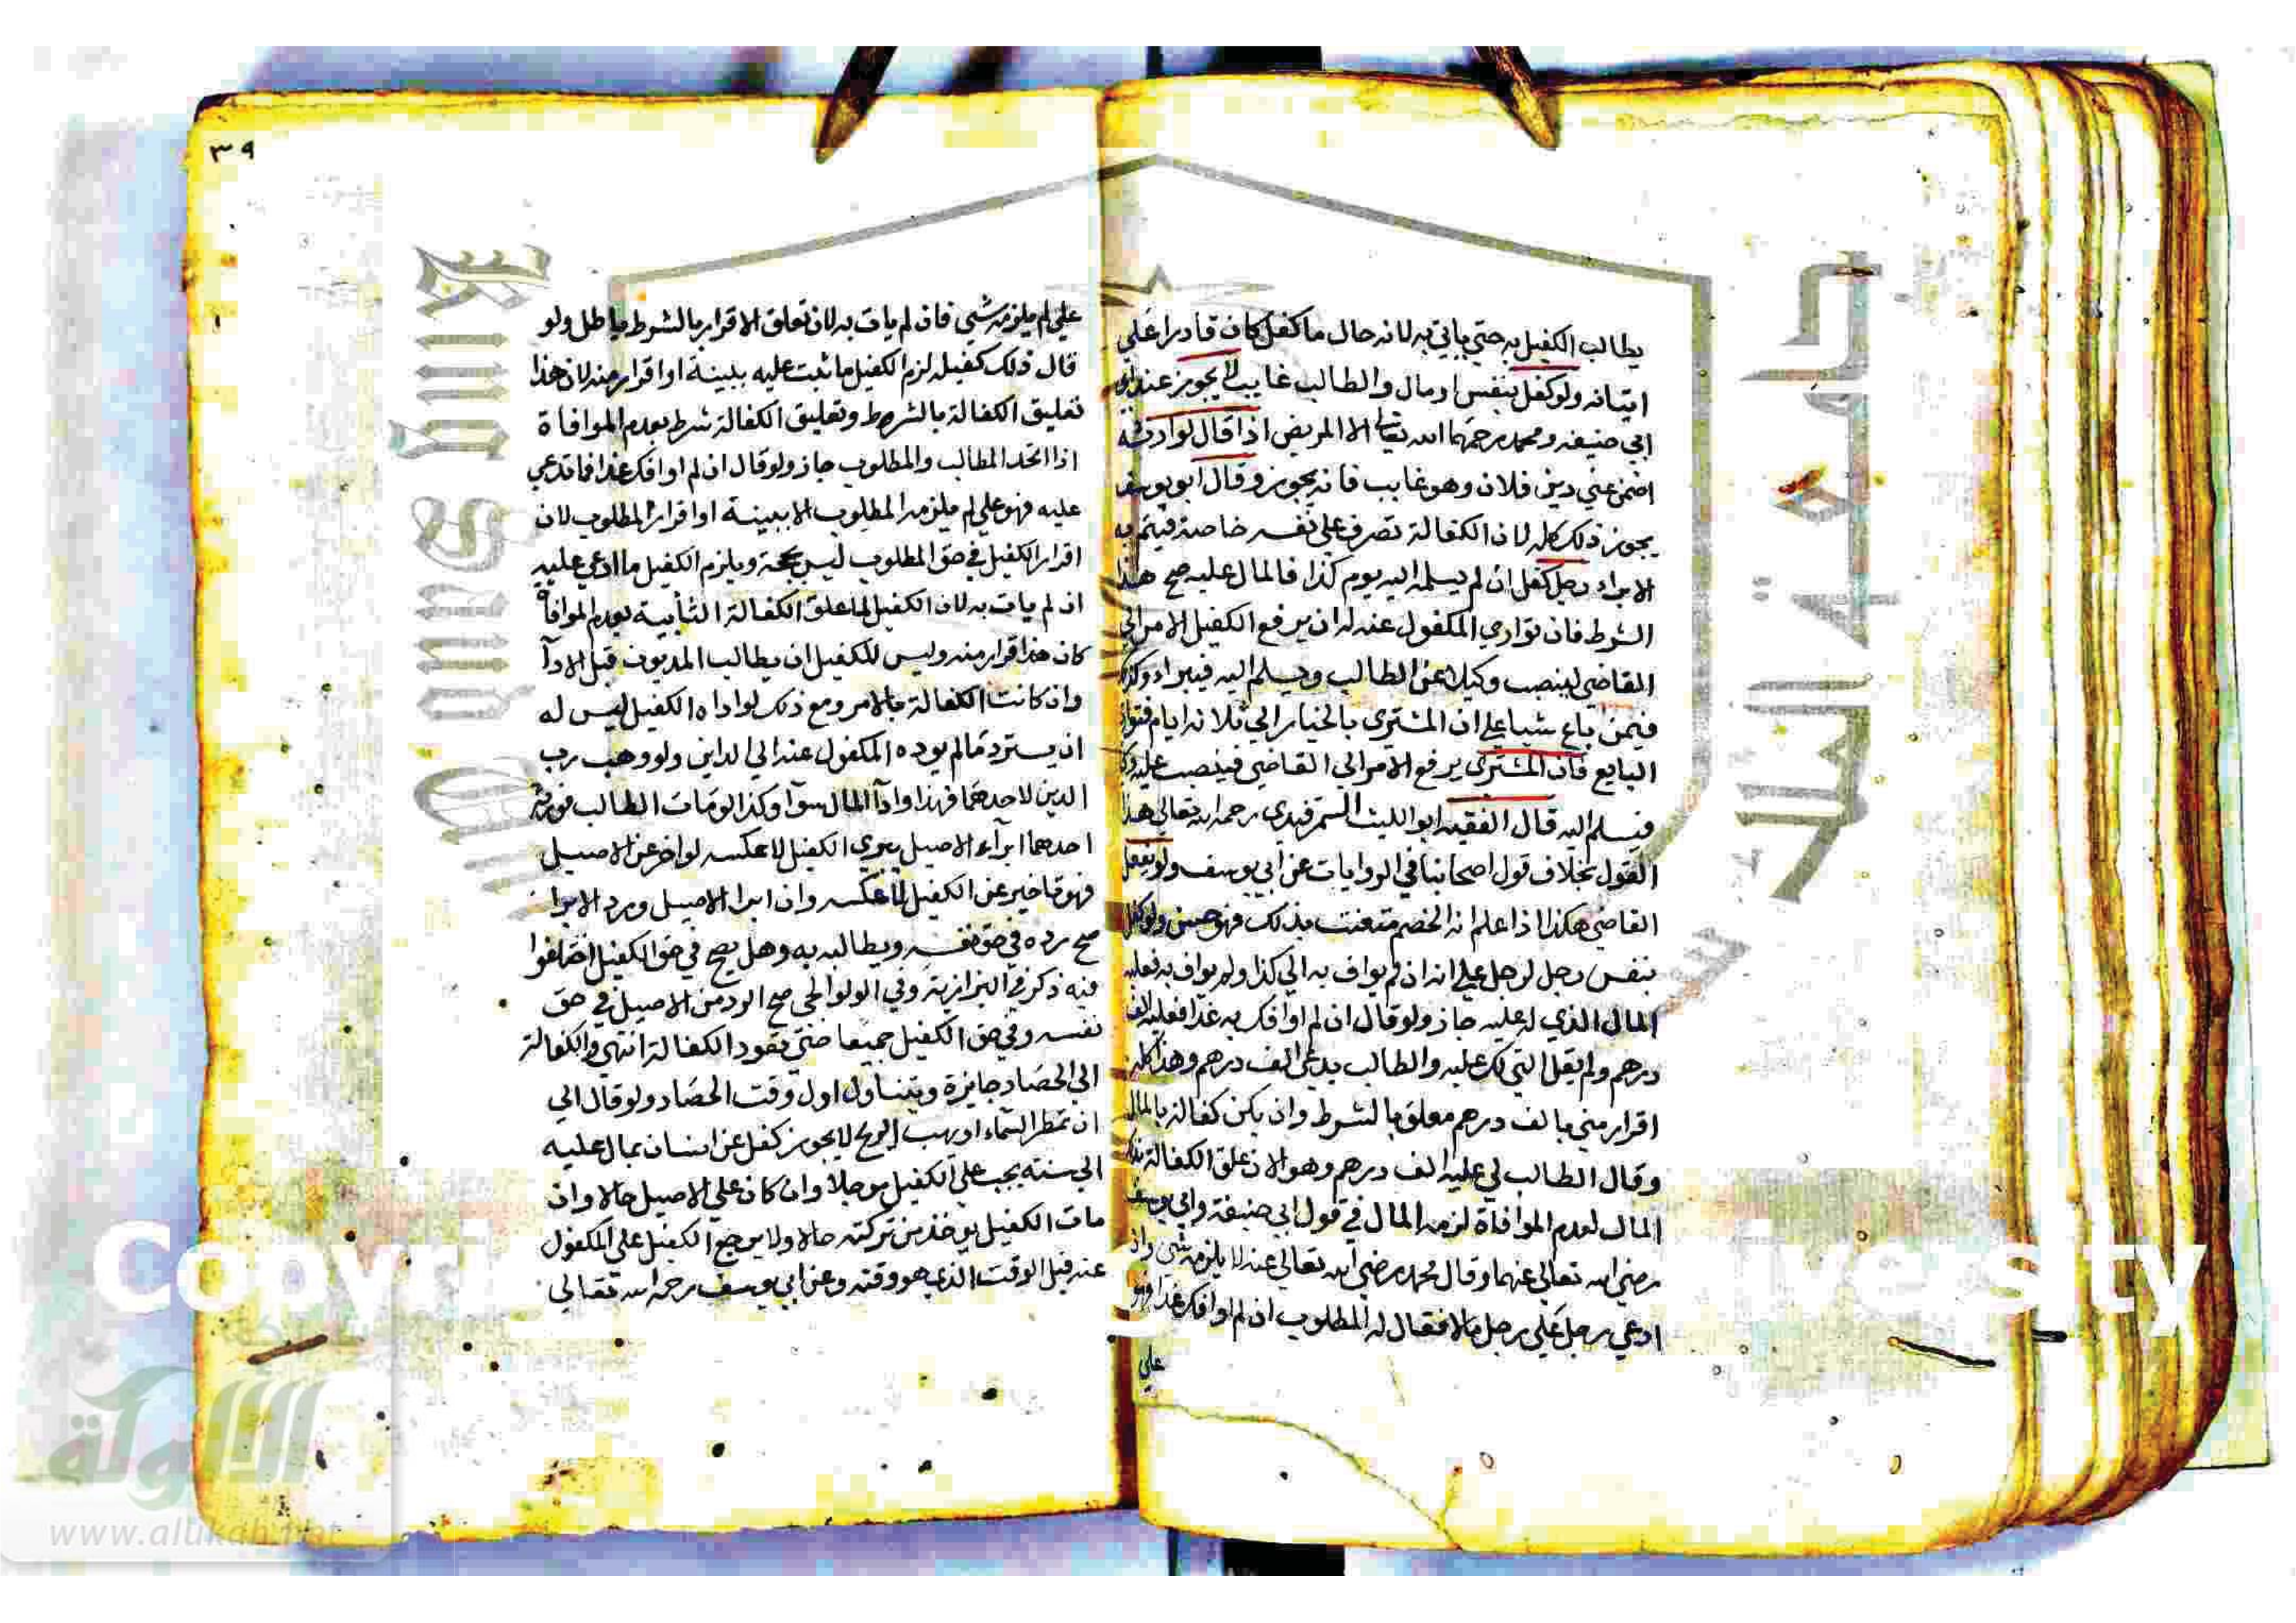 يطالب الكفيل به حتي ياتي به لانه حال ما كفل كان قادرا علي
اتيانه ولو كفل بنفس او مال والطالب غايب لا يجوز عند
ابي حنيفه ومحمد رحمهما الله تعالي الا المريض اذا قال لوارثه
اضمن عني دين فلان وهو غايب فانه يجوز وقال ابو يوسف
يجوز ذلك كله لان الكفالة تصرف علي نفسه خاصة فيتم به
الابراء رجل كفل ان لم يسلمه اليه يوم كذا فالمال عليه صح هذا
الشرط فان تواري المكفول عنه له ان يرفع الكفيل الامر الي
القاضي لينصب وكيلا عن الطالب ويسلم اليه فيبراء وكذا
فيمن اباع شيا علي ان المشتري بالخيار الي ثلاثه ايام فتوار
البايع فان المشتري يرفع الامر الي القاضي فينصب عليه وكيلا
فيسلم اليه قال الفقيه ابو الليث السمرقندي رحمه الله تعالي هذا
القول بخلاف قول اصحابنا في الروايات عن ابي يوسف ولو يفعل
القاضي هكذا اذا علم انه الخصم متعنت بذلك فهو حسن ولو كفل
بنفس رجل لرجل علي انه ان لم يواف به الي كذا ولم يواف به فعليه
المال الذي له عليه جاز ولو قال ان لم اوافك به غدا فعليه الف
درهم ولم يقل التي لك عليه والطالب يدعي الف درهم وهذا كله
اقرار مني بالف درهم معلق بالشرط وان يكن كفالة بالمال
وقال الطالب لي عليه الف درهم وهو الان علق الكفالة بذلك
المال لعدم الموافاة لزمه المال في قول ابي حنيفة وابي يوسف
رضي الله تعالي عنهما وقال محمد رضي الله تعالي عنه لا يلزمه شي وان
ادعي رجل علي رجل مالا فقال له المطلوب ان لم اوافك غدا فهو
علي
٣٩
علي لم يلزمه شي فان لم يات به لان تعلق الاقرار بالشرط باطل ولو
قال ذلك كفيله لزم الكفيل ما ثبت عليه ببينة او اقرار منه لان هذا
تعليق الكفالة بالشرط وتعليق الكفالة شرط بعدم الموافاة
اذا اتحد الطالب والمطلوب جاز ولو قال ان لم اوافك غدا فما تدعي
عليه فهو علي لم يلزمه المطلوب الا ببينة او اقرار المطلوب لان
اقرار الكفيل في حق المطلوب ليس بحجة ويلزم الكفيل ما ادعي عليه
ان لم يات به لان الكفيل لما علق الكفالة الثانية بعدم الموافاة
كان هذا اقرار منه وليس للكفيل ان يطالب المديون قبل الادآ
وان كانت الكفالة بالامر ومع ذلك لو اداه الكفيل ليس له
ان يسترد ما لم يوده المكفول عنه الي الداين ولو وهب رب
الدين لاحدهما فهذا وادآ المال سوآ وكذا لو مات الطالب فورثه
احدهما ابرآء الاصيل يبري الكفيل لا عكسه لو اخر عن الاصيل
فهو تاخير عن الكفيل لا عكسه وان ابرا الاصيل ورد الابرا
صح رده في حق نفسه ويطالبه به وهل يصح في حق الكفيل اختلفوا
فيه ذكر في البزازية وفي الولوالجي صح الرد من الاصيل في حق
نفسه وفي حق الكفيل جميعا حتي يعود الكفالة انتهي والكفالة
الي الحصاد جايزة ويتناول اول وقت الحصاد ولو قال الي
ان تمطر السماء او يهب الريح لا يجوز كفل عن انسان بمال عليه
الي سنته يجب علي الكفيل موجلا وان كان علي الاصيل حالا وان
مات الكفيل يوخذ من تركته حالا ولا يرجع الكفيل علي المكفول
عنه قبل الوقت الذي هو وقته وعن ابي يوسف رحمه الله تعالي
الألوكة
www.alukah.net